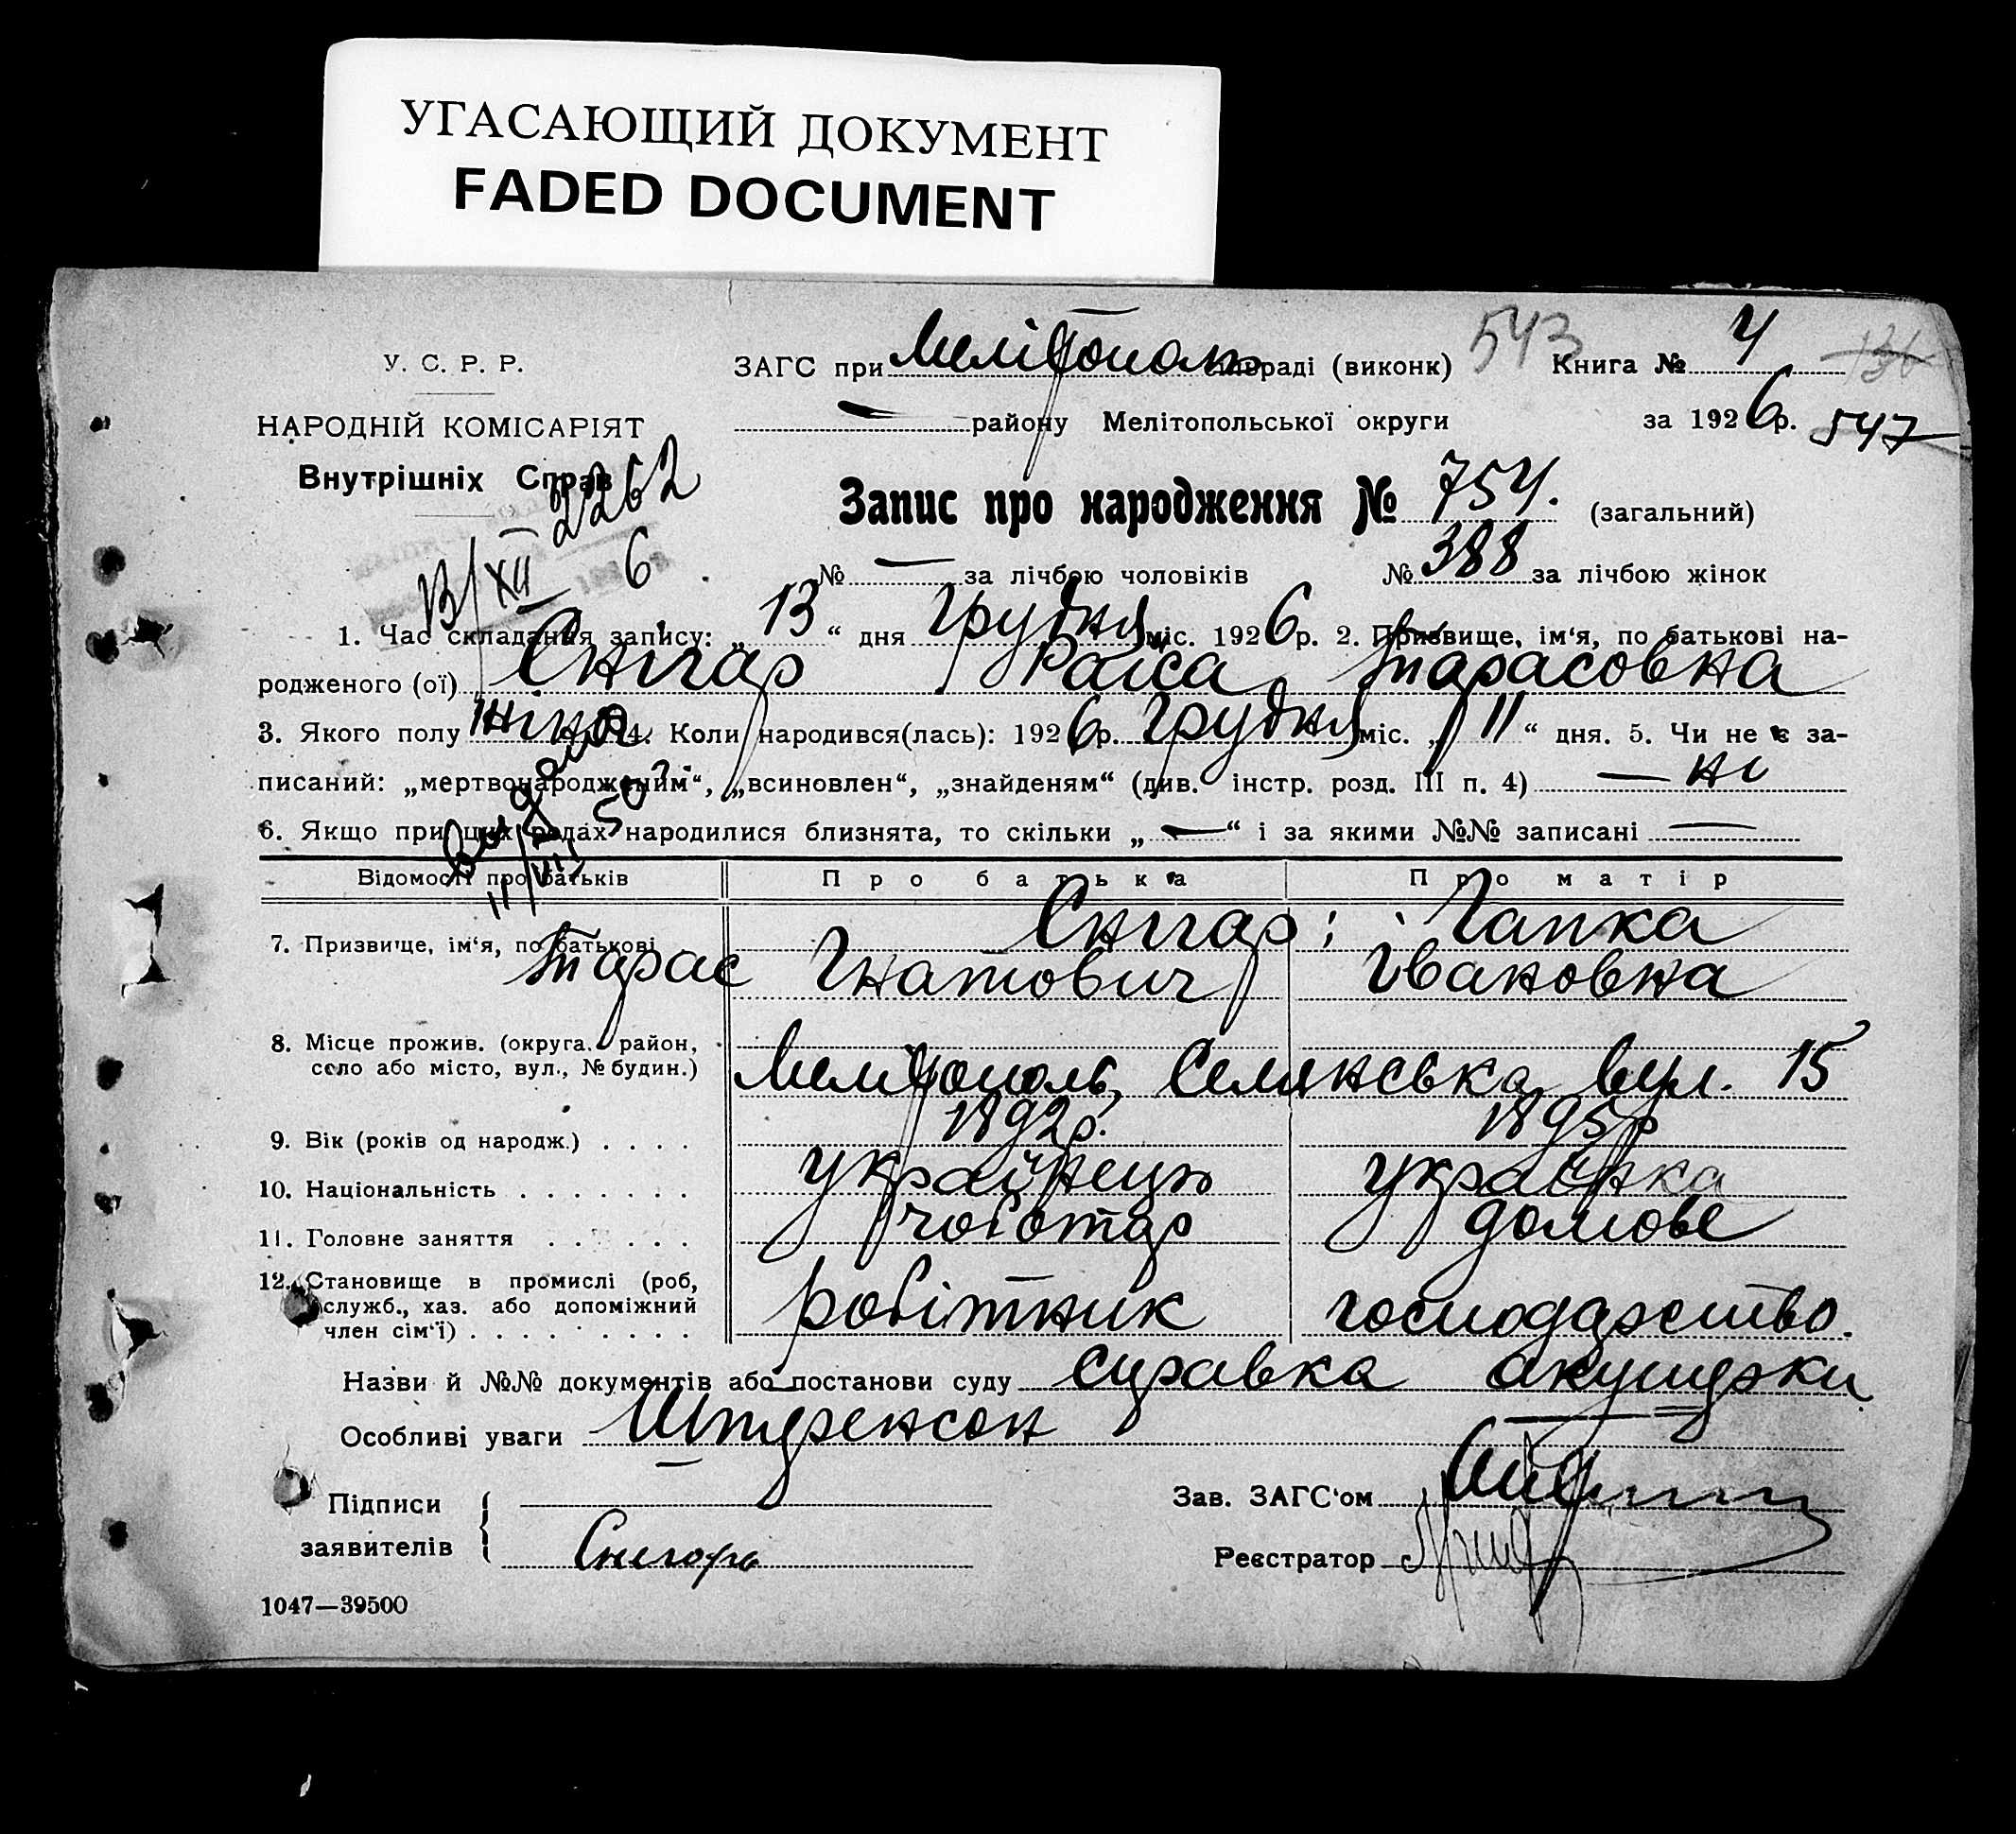 УГАСАЮЩИЙ ДОКУМЕНТ
FADED DOCUMENT
У. С. Р. Р.
НАРОДНІЙ КОМІСАРІЯТ
Внутрішніх Справ
2262
13/XII 6
ЗАГС при Мелітопол раді (виконк) 543 Книга № 4
— району Мелітопольської округи за 1926 р. 547
Запис про народження № 754. (загальний)
№ — за лічбою чоловіків № 388 за лічбою жінок
1. Час складання запису: „ 13 “ дня Грудня міс. 1926 р. 2. Призвище, ім‘я, по батькові на-
родженого (ої) Снігар Раїса Тарасовна
3. Якого полу жіноч. 4. Коли народився(лась): 1926 р. Грудня міс. „ 11 “ дня. 5. Чи не є за-
писаний: „мертвонародженим“, „всиновлен“, „знайденям“ (див. інстр. розд. III п. 4) — ні
6. Якщо при цих родах народилися близнята, то скільки „ — “ і за якими №№ записані —
11/VII 50 г.
Відомості про батьків Про батька Про матір
7. Призвище, ім‘я, по батькові Снігар; Гапка
Тарас Гнатович Івановна
8. Місце прожив. (округа, район,
село або місто, вул., № будин.) Мелітополь, Селянська вул. 15
9. Вік (років од народж.) . . . . 1892 р. 1895 р
10. Національність . . . . . . . українець українка
11. Головне заняття . . . . . . чоботар домове
12. Становище в промислі (роб,
служб., хаз. або допоміжний
член сім‘ї) . . . . . . . . . робітник господарство.
Назви й №№ документів або постанови суду справка акушерки
Особливі уваги Штеренсон
Підписи
заявителів Снегорь
Зав. ЗАГС‘ом
Реєстратор
1047—39500